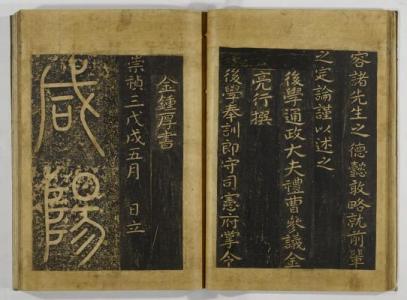 容諸先生之德懿敢略就前輩
之定論謹以述之
後學通政大夫禮曹參議金
亮行撰
後學奉訓郎守司憲府掌令
金鍾厚書
崇禎三戊戌五月　日立
咸
陽